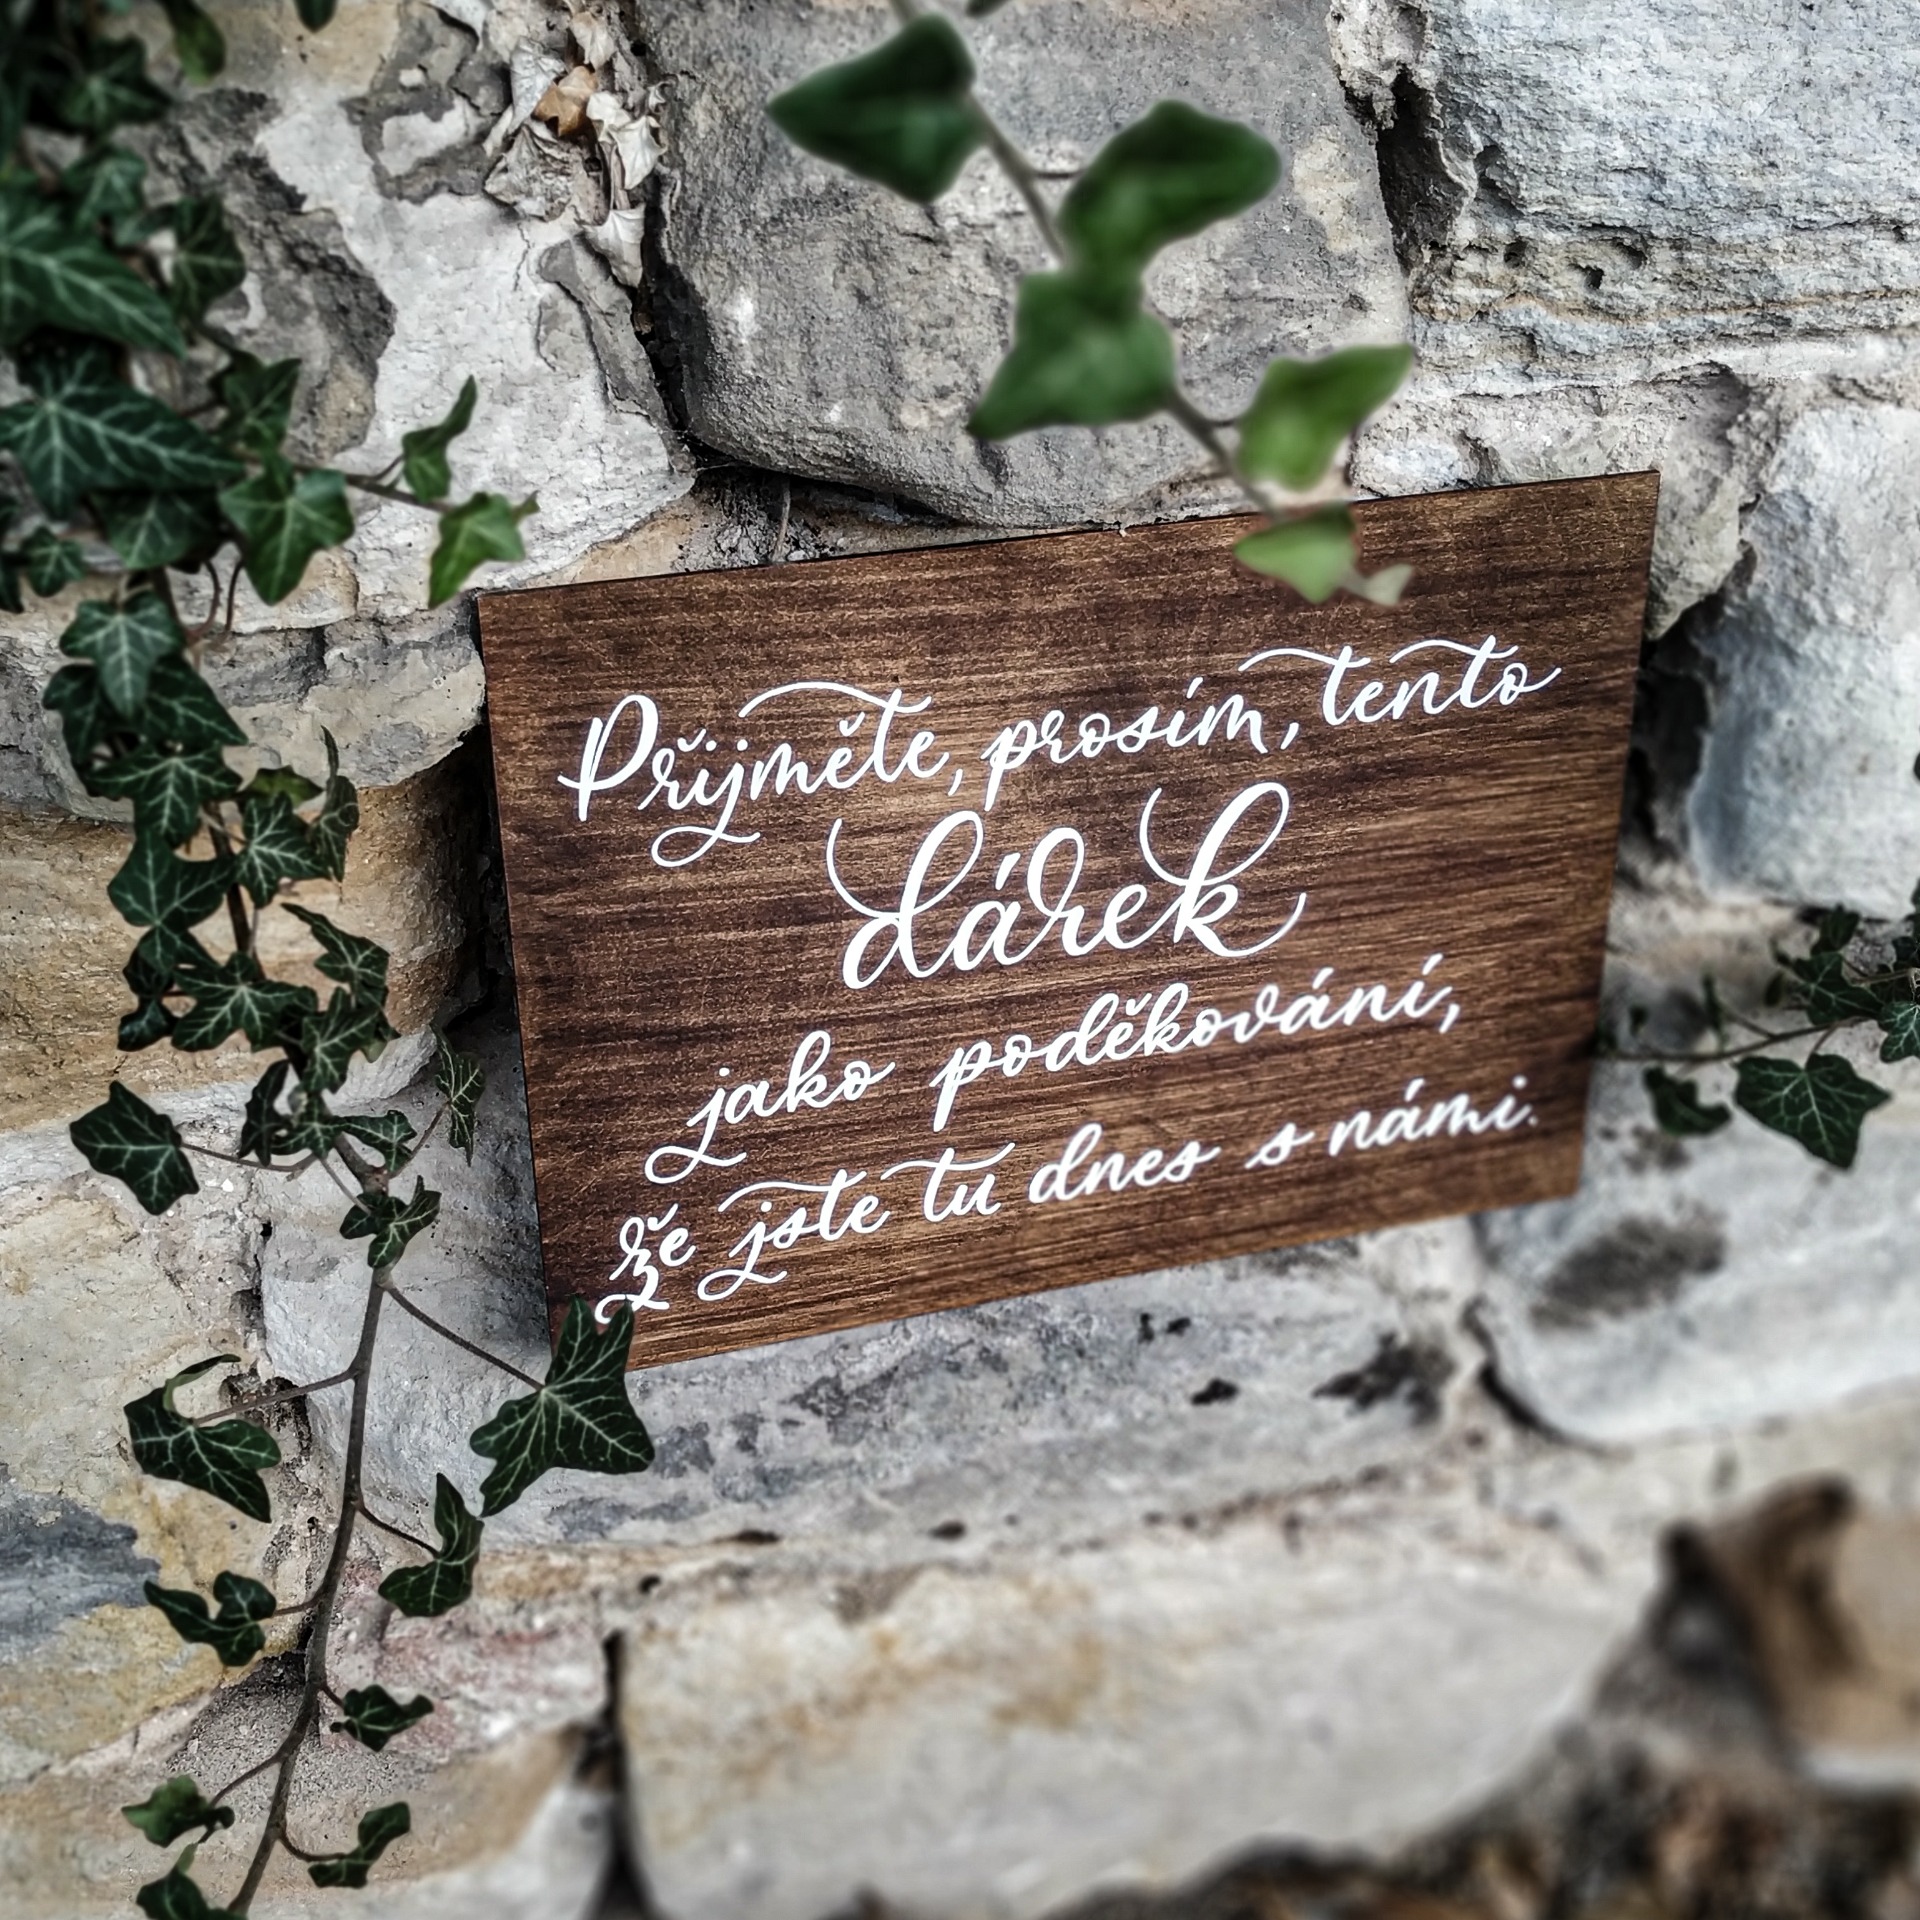 Přijměte, prosím, tento
dárek
jako poděkování,
že jste tu dnes s námi.